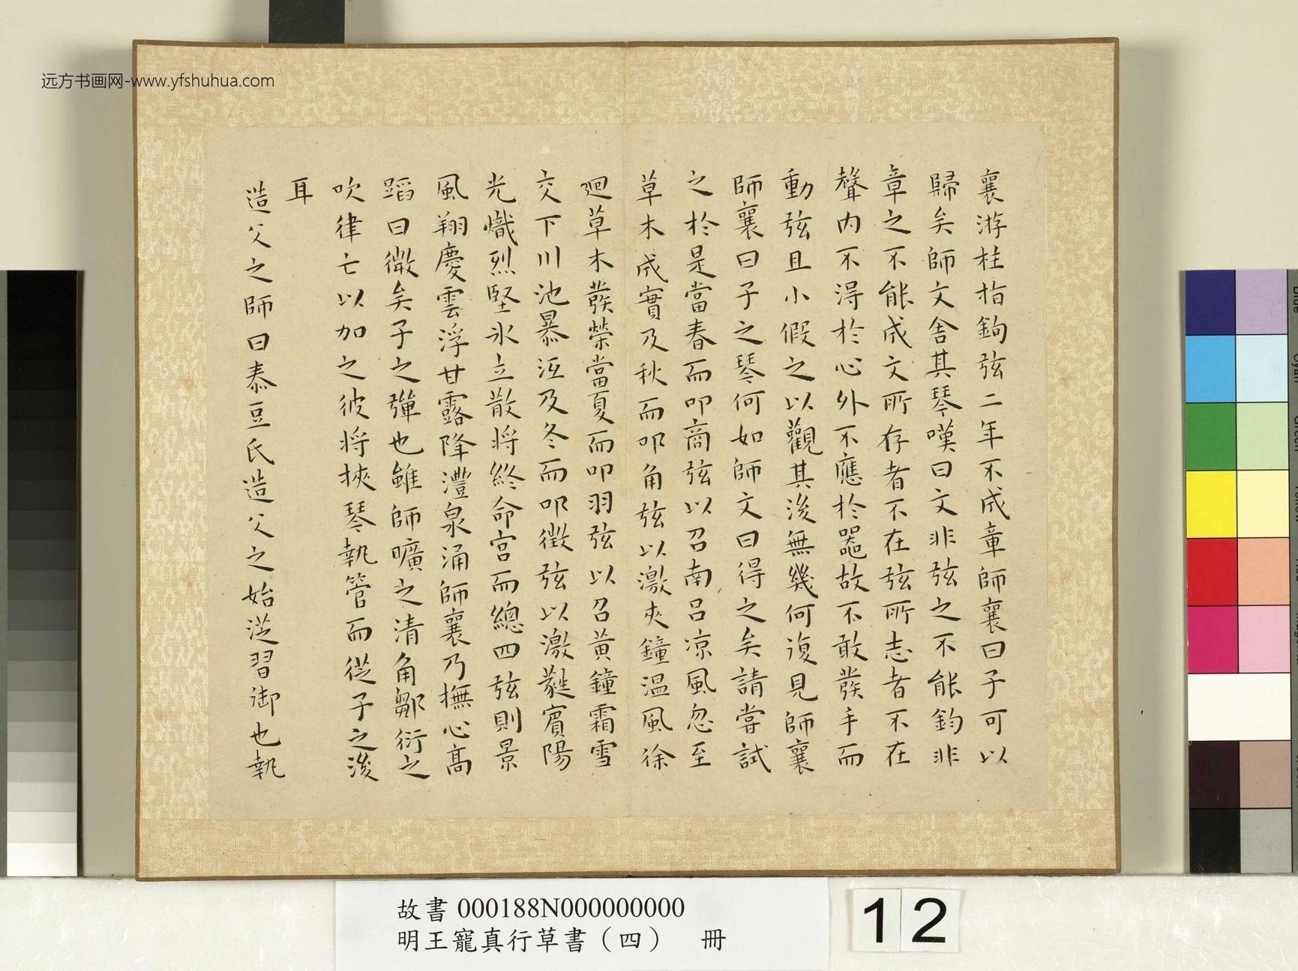 远方书画网-www.yfshuhua.com
襄游柱指鉤弦三年不成章師襄曰子可以
歸矣師文舍其琴嘆曰文非弦之不能鈞非
章之不能成文所存者不在弦所志者不在
聲内不得於心外不應於器故不敢發手而
動弦且小假之以觀其後無幾何復見師襄
師襄曰子之琴何如師文曰得之矣請嘗試
之於是當春而叩商弦以召南呂涼風忽至
草木成實及秋而叩角弦以激夾鐘温風徐
迴草木發榮當夏而叩羽弦以召黄鐘霜雪
交下川池暴沍及冬而叩徵弦以激蕤賓陽
光熾烈堅冰立散將終命宮而總四弦則景
風翔慶雲浮甘露降澧泉涌師襄乃撫心高
蹈曰微矣子之彈也雖師曠之清角鄒衍之
吹律亡以加之彼將挾琴執管而從子之後
耳
造父之師曰泰豆氏造父之始從習御也執
故書 000188N000000000
明王寵真行草書（四） 冊
12
Blue
Cyan
Green
Yellow
Red